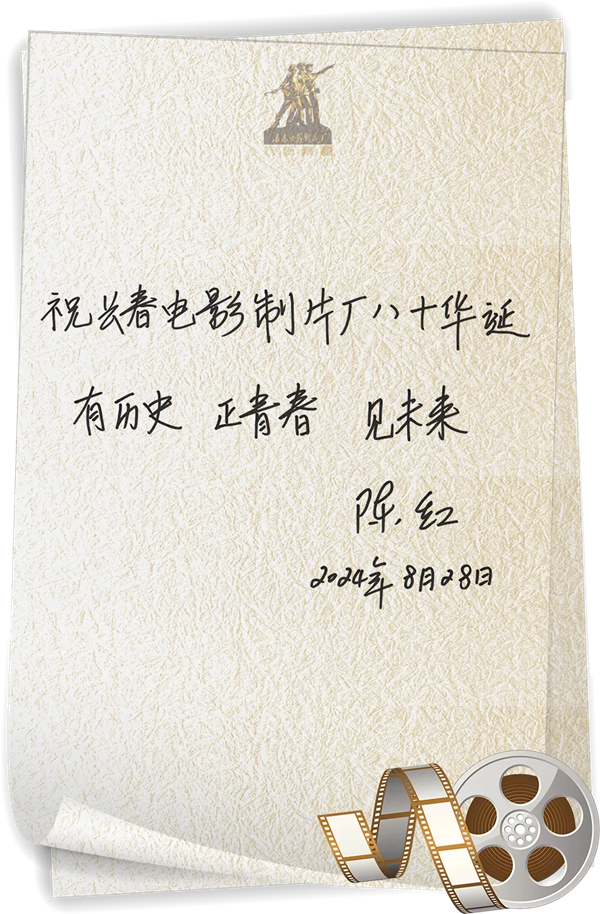 长春电影制片厂
祝长春电影制片厂八十华诞
有历史 正青春 见未来
陈红
2024年8月28日